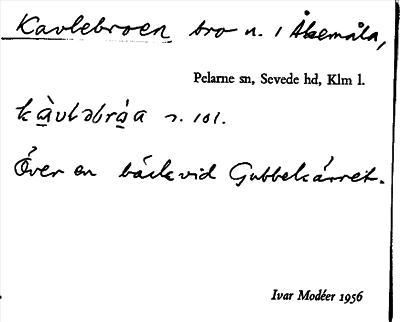 Kavlebroen bro n. i Åkemåla,
Pelarne sn, Sevede hd, Klm l.
kàvləbrá̤a n. 101.
Över en bäck vid Gubbekärret.
Ivar Modéer 1956